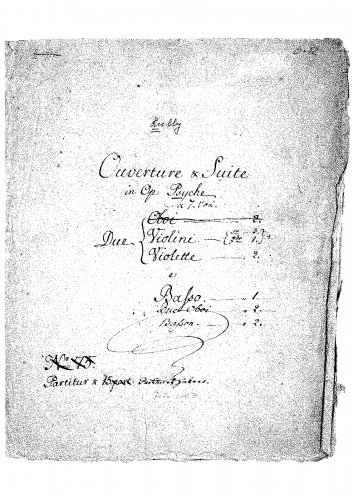 Lully
Ouverture & Suite
in Op Psyche
à 7. Voc.
Oboi 2.
Due Violini 1.
Violette 2.
e
Basso. 1.
Due Oboi 2.
Basson. 2.
Partitur &